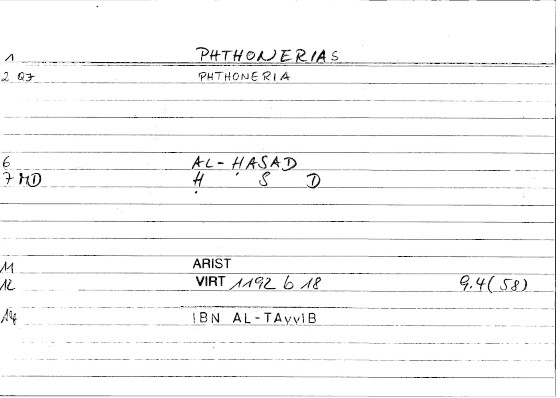 1 PHTHONERIAS
2 QJ PHTHONERIA
6 AL-ḤASAD
7 MD Ḥ S D
11 ARIST
12 VIRT 1192 b 18 9.4(58)
14 IBN AL-TAyyIB